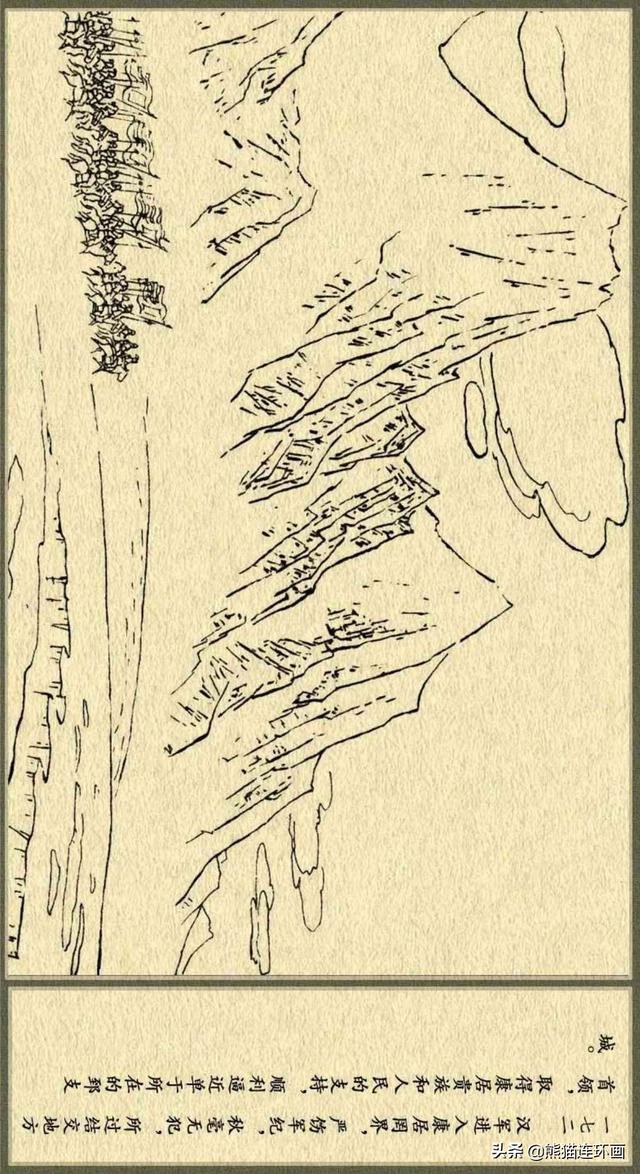 一七二 汉军进入康居国界，严饬军纪，秋毫无犯，所过结交地方
首领，取得康居贵族和人民的支持，顺利逼近单于所在的郅支
城。
头条 @熊猫连环画